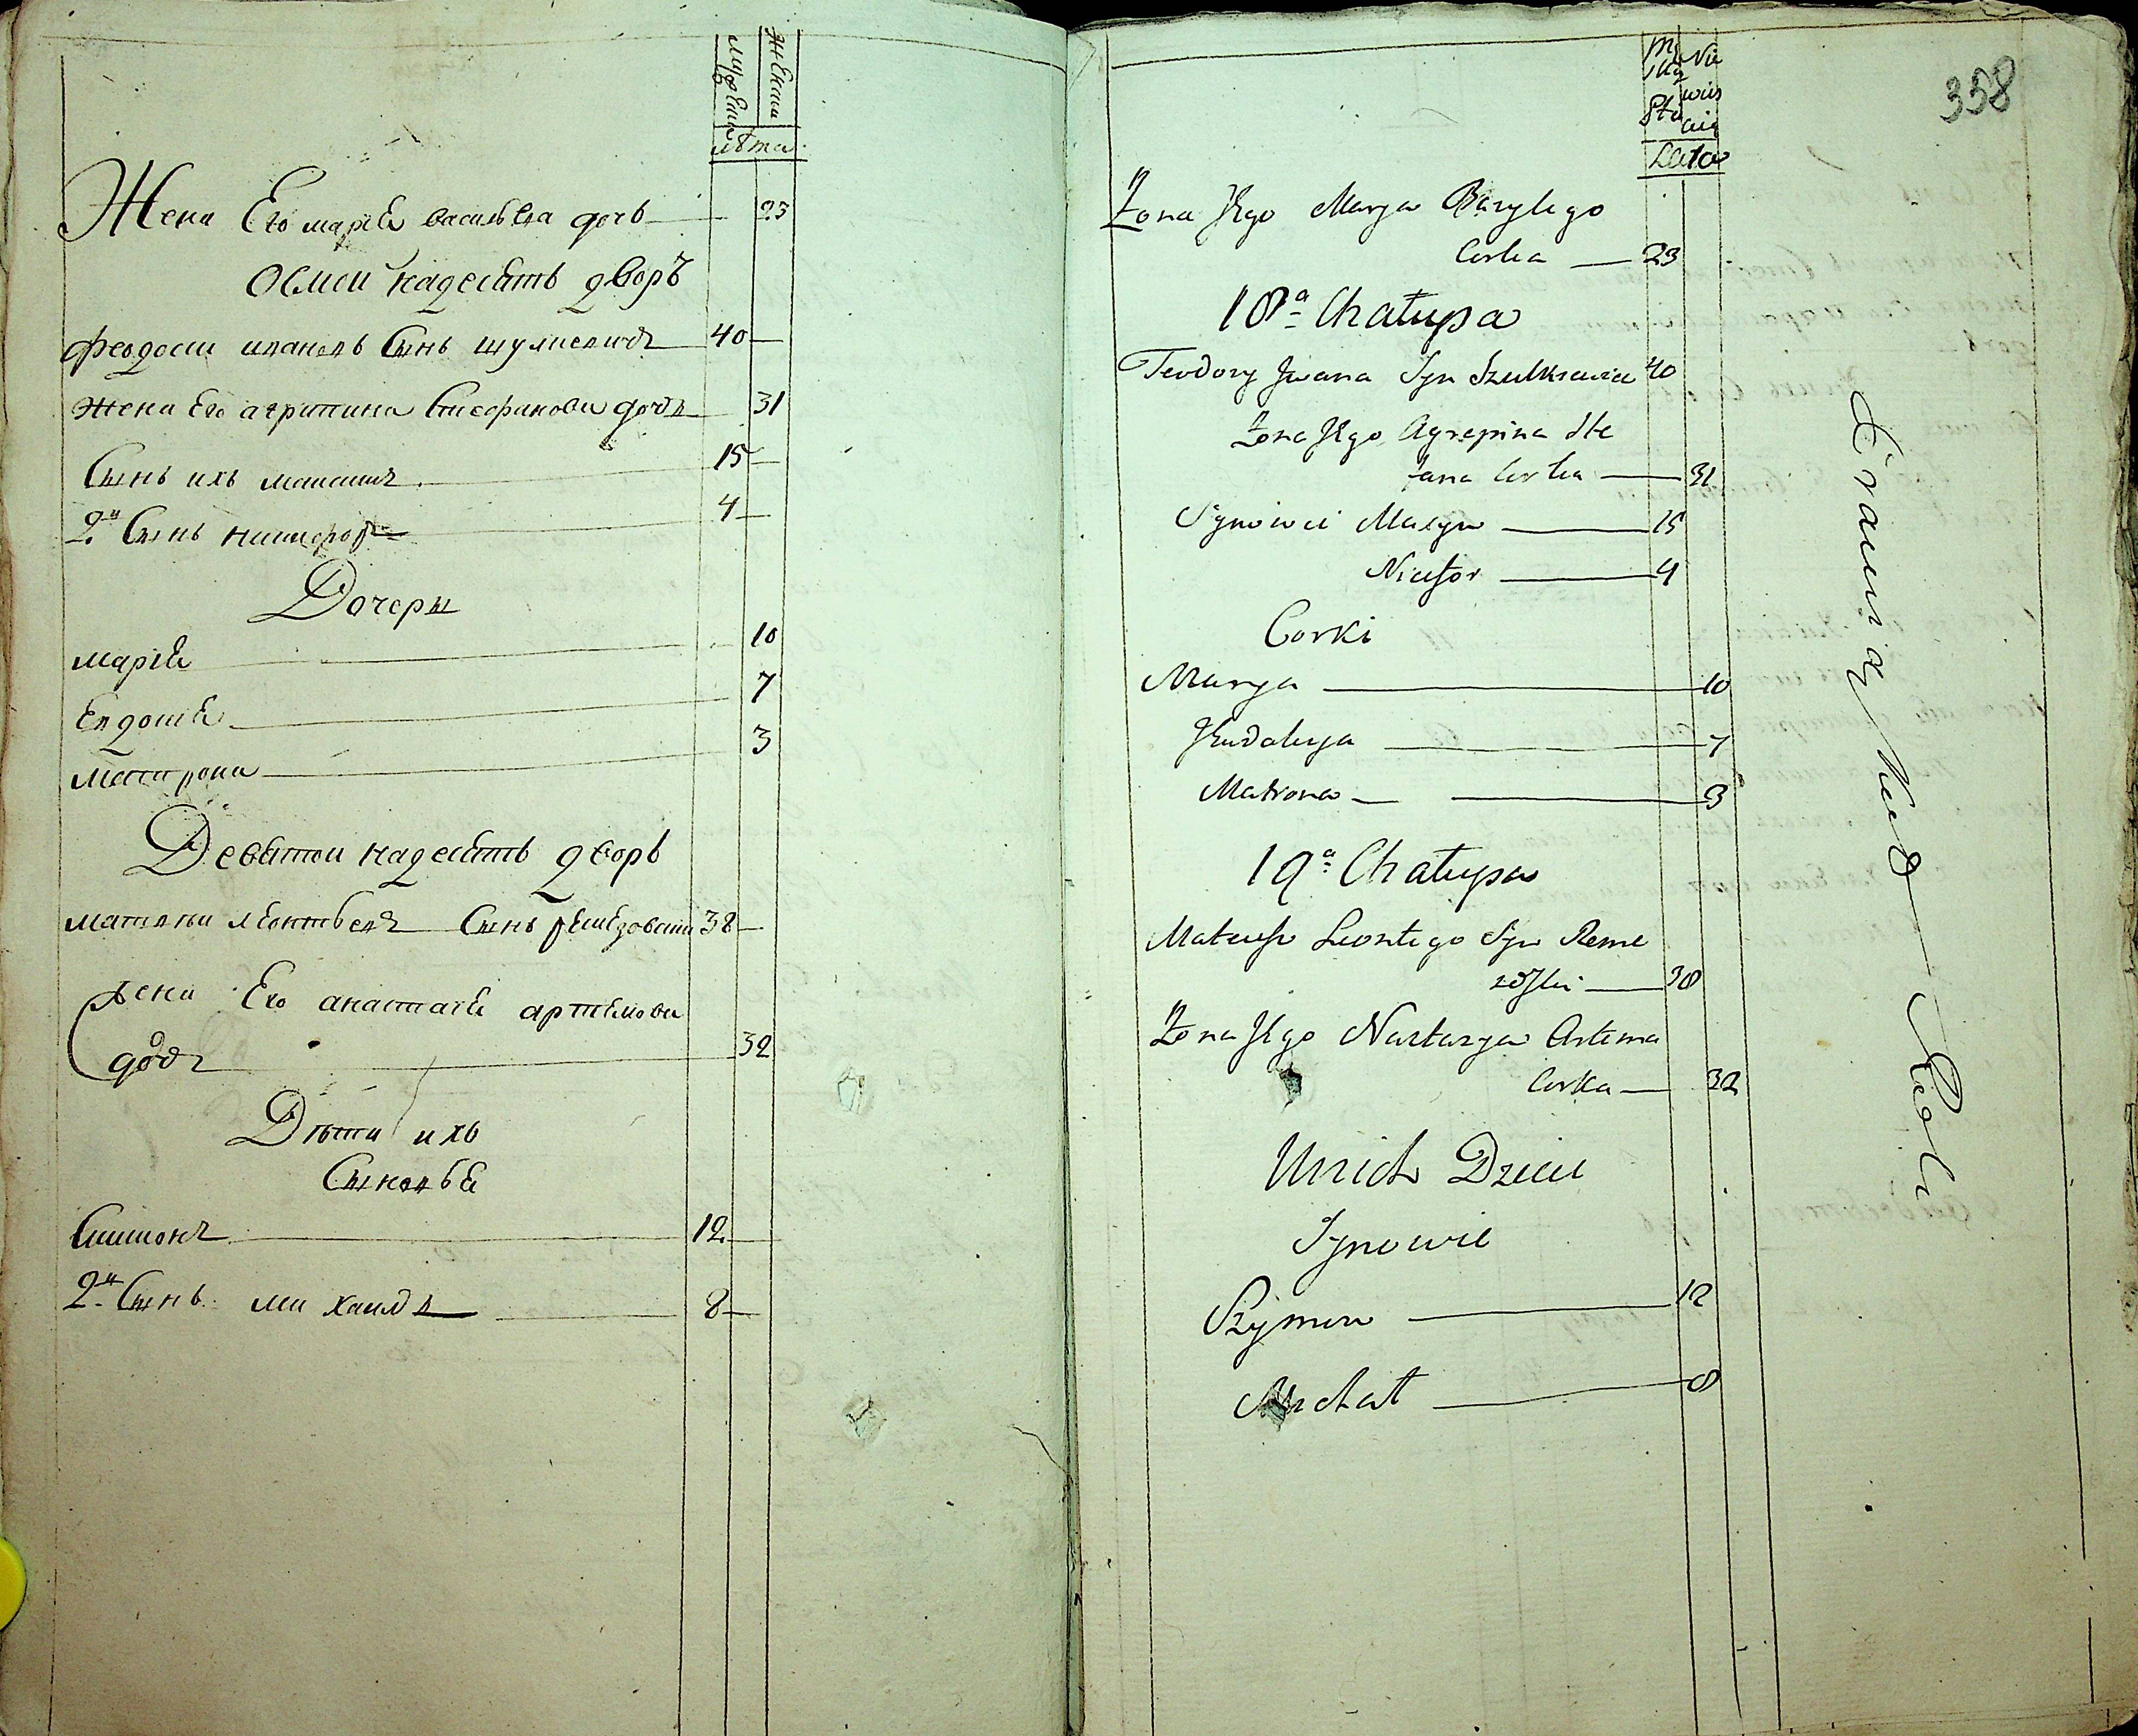 мужеска
женска
лѣта
Жена Его марія васильева дочь 23
Осмои надесять дворъ
феодосіи ивановъ Сынъ шулкевичъ 40
Жена Его агрипина Стефанова дочь 31
Сынъ ихъ 15
2й Сынъ никифоръ 4
Дочери
марія 10
Евдокія 7
матрона 3
Девятои надесять дворъ
матвеи леонтьевъ Сынъ 38
жена Его анастасія артемова
дочь 32
Дѣти ихъ
Сыновья
Симионъ 12
2й Сынъ михаилъ 8
358
Męska Płeć
Niewieścia
Lata
Żona Jego Marya Bazylego
Corka — 23
18a Chałupa
Teodory Jwana Syn Szulkiewicz 40
Żona Jego Agrepina Ste
fana Corka — 31
Synowie — 15
Nicefor — 4
Corki
Marya — 10
Eudokya — 7
Matrona — 3
19a Chałupa
Mateusz Leontego Syn Reme
zowski — 38
Żona Jego Nastazya Artema
Corka — 32
U nich Dzieci
Synowie
Szymon — 12
Michał — 8